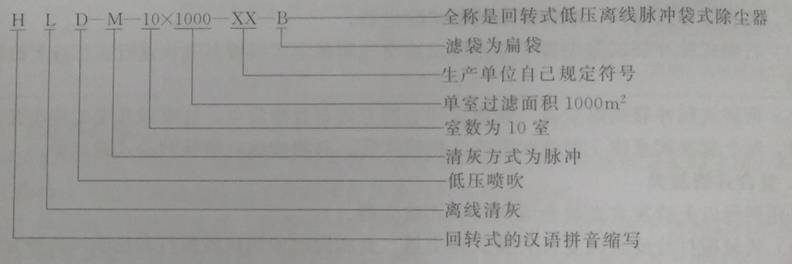 H L D—M—10×1000—XX—B 全称是回转式低压离线脉冲袋式除尘器
滤袋为扁袋
生产单位自己规定符号
单室过滤面积1000m²
室数为10室
清灰方式为脉冲
低压喷吹
离线清灰
回转式的汉语拼音缩写